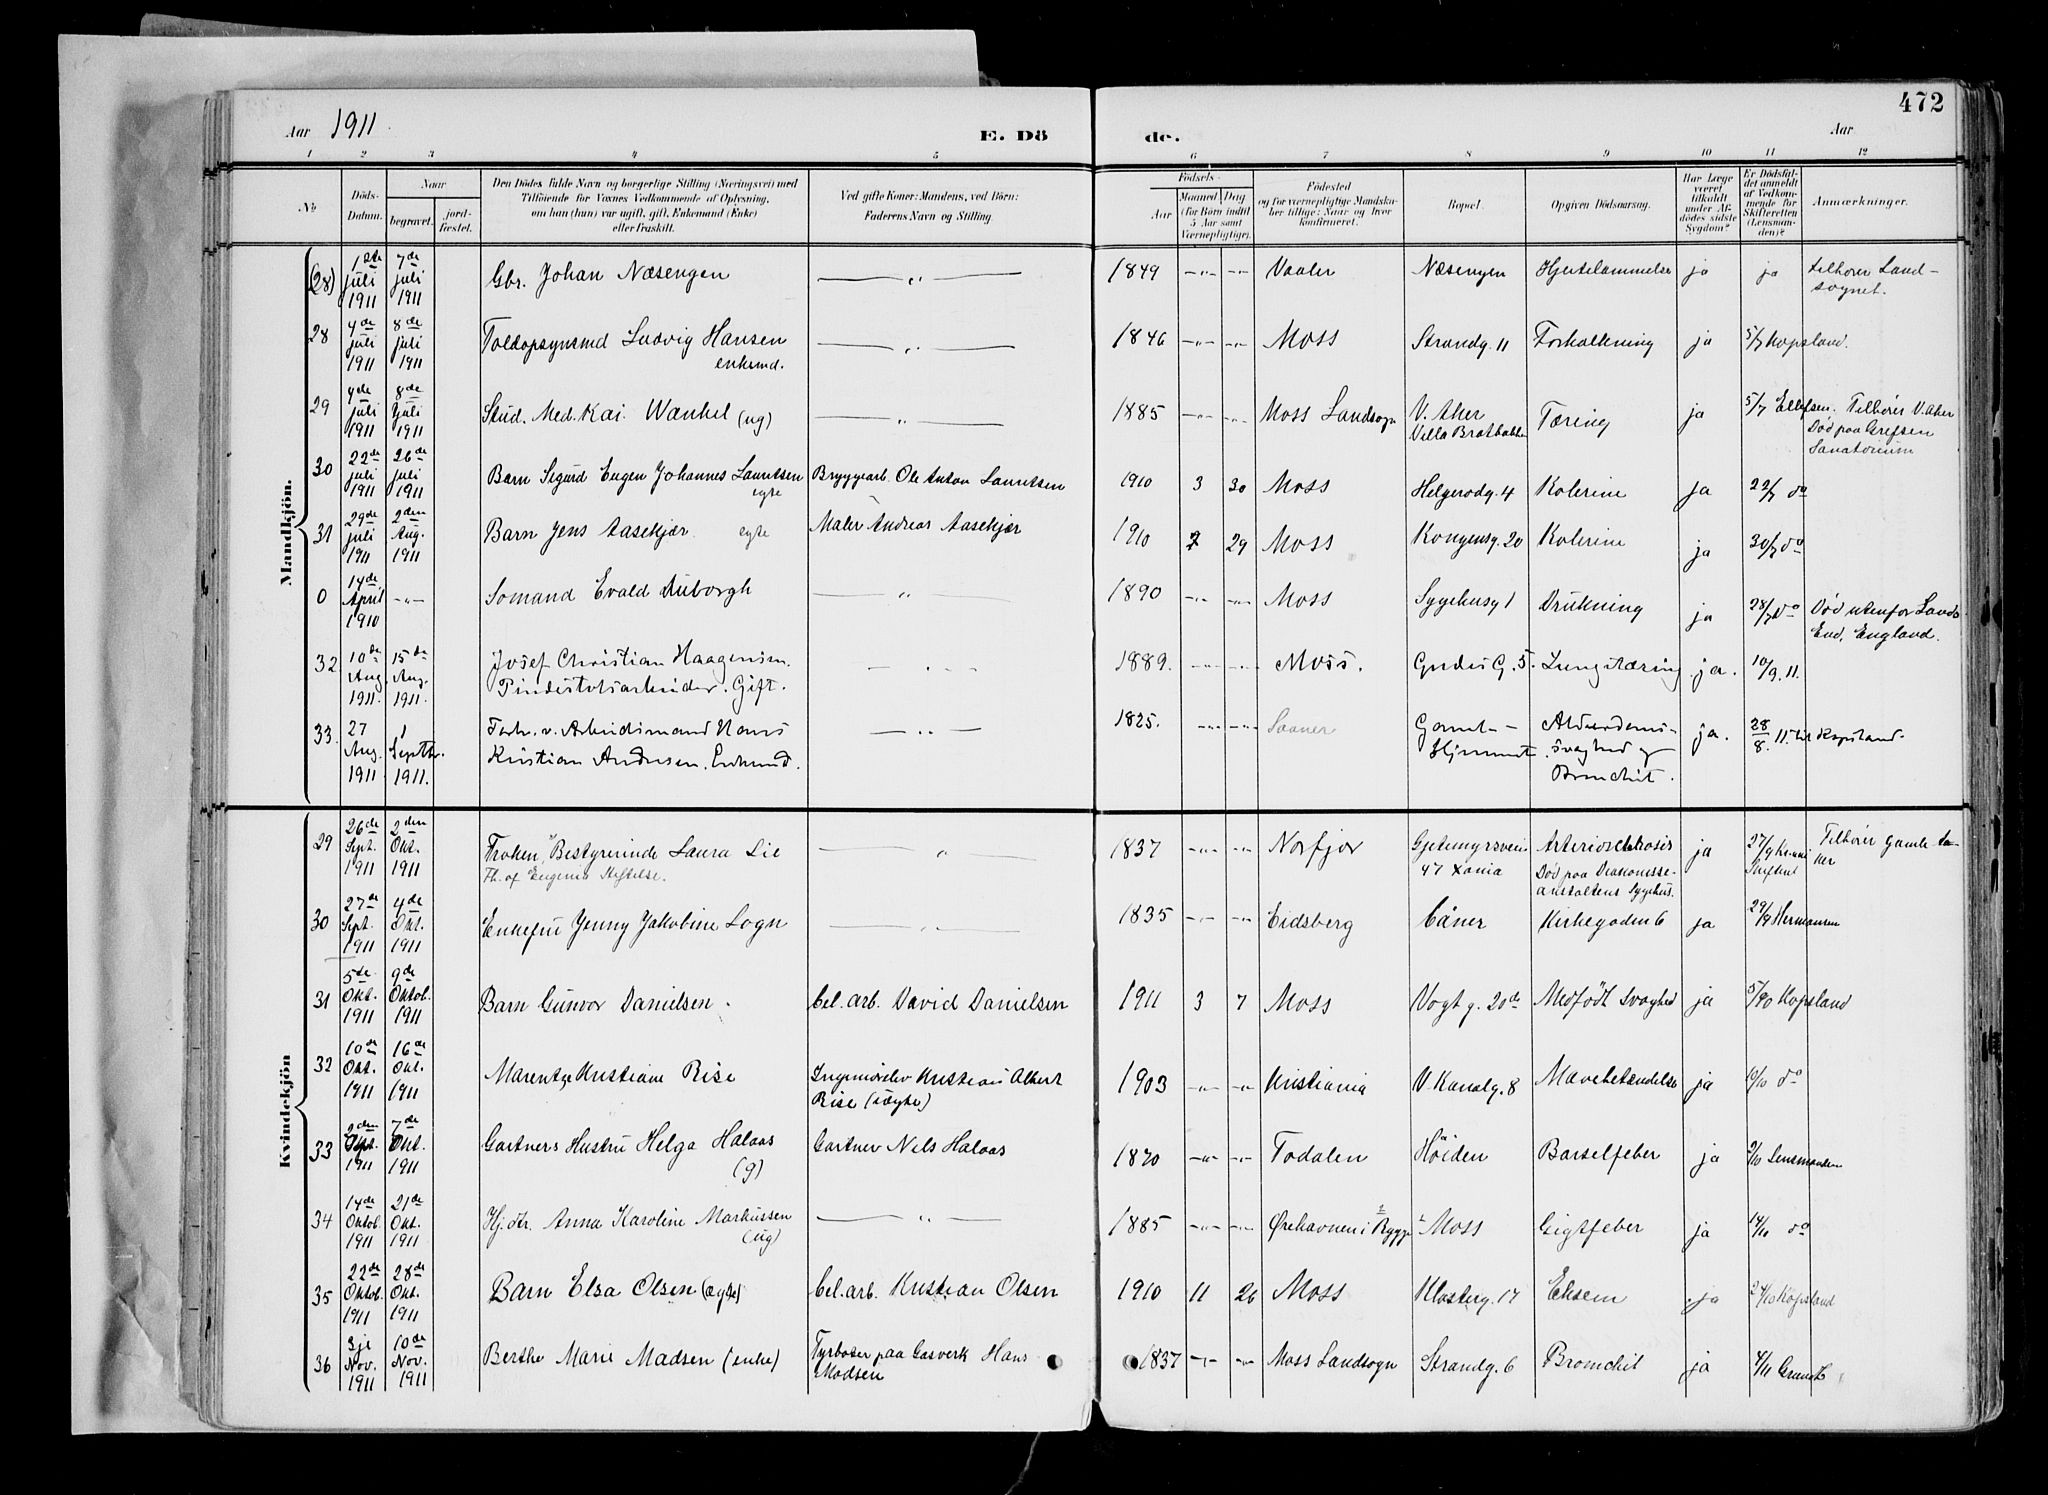 472
Aar 1911 E. Dö de. Aar
1 2 3 4 5 6 7 8 9 10 11 12
№
Döds-Datum.
Naar
begravet.
jord-fæstet.
Den Dödes fulde Navn og borgerlige Stilling (Næringsvei) med
Tilföiende for Voxnes Vedkommende af Oplysning,
om han (hun) var ugift, gift, Enkemand (Enke)
eller fraskilt.
Ved gifte Koner: Mandens, ved Börn:
Faderens Navn og Stilling.
Födsels-
Aar
Maaned Dag
(for Börn indtil
5 Aar samt
Værnepligtige).
Födested
og for værnepligtige Mandskaber tillige: Naar og hvor
konfirmeret.
Bopæl.
Opgiven Dödsaarsag.
Har Læge
været
tilkaldt
under Afdödes sidste
Sygdom?
Er Dödsfaldet anmeldt
af Vedkommende for
Skifteretten
(Lensmanden)?
Anmærkninger.
Mandkjön.
(28) 1ste juli 1911 7de juli 1911 Gbr. Johan Næsengen —„— 1849 -„- -„- Vaaler Næsengen Hjertelammelse ja ja tilhører Land-
sognet.
28 4de juli 1911 8de juli 1911 Toldopsynsmd Ludvig Hansen —„— 1846 -„- -„- Moss Strandg. 11 Forkalkning ja 5/7 Kopsland.
enkemd.
29 4de juli 1911 8de juli 1911 Stud. Med. Kai Wankel (ug) —„— 1885 -„- -„- Moss Landsogn V. Aker Tæring ja 5/7 Ellefsen. Tilhører V. Aker
Villa Bratbakken Død paa Grefsen
Sanatorium
30 22de juli 1911 26de juli 1911 Barn Sigurd Eugen Johannes Lauritsen Bryggearb. Ole Anton Lauritsen 1910 3 30 Moss Helgerødg. 4 Kolerine ja 22/7 do
egte
31 29de juli 1911 2den Aug. 1911 Barn Jens Aasekjær egte Maler Andreas Aasekjær 1910 7 29 Moss Kongensg. 20 Kolerine ja 30/7 do
0 14de April 1910 -„- Sømand Evald Auborgh —„— 1890 -„- -„- Moss Sygehusg 1 Drukning ja 28/7 do Død utenfor Lands
End, England.
32 10de Aug. 1911. 15de Aug. 1911. Josef Christian Haagensen. — „ — 1889. -„- -„- Moss. Gudes G. 5. Lungetæring ja. 10/9 11.
Pindestolsarbeider. Gift.
33. 27 Aug. 1911 1 Septbr. 1911. Forh. v. Arbeidsmand Hans —„— 1825. -„- -„- Saaner Gamle- Alderdoms- ja. 28/8. 11. til Kopsland
Kristian Andersen. Enkemd. Hjemmet. svaghed og
Bronchit.
Kvindekjön
29 26de Sept. 1911 2den Okt. 1911 Frøken, Bestyrerinde Laura Lie —„— 1837 -„- -„- Norfjor Gjetemyrsveien Arteriosclerosis ja 27/9 Kr.ania Tilhører Gamle A-
Th. af Eugenia Stiftelse. 47 Xania Død paa Diakonisse- Skifteret ker
anstaltens Sygehus.
30 27de Sept. 1911 4de Okt. 1911 Enkefru Jenny Jakobine Logn —„— 1835 -„- -„- Eidsberg Cåner Kirkegaden 6 ja 29/9 Hermansen
31 5de Okt. 1911 9de Oktob. 1911 Barn Gunvor Danielsen. Cel. arb. David Danielsen 1911 3 7 Moss Vogt g. 20de Medfødt Svaghed ja 5/10 Kopsland
32 10de Okt. 1911 16de Okt. 1911 Marentze Kristiane Riise Ingeniørelev Kristian Albert 1903 -„- -„- Kristiania V. Kanalg. 8 Mavebetændelse ja 10/10 do
Riise (uegte)
33 2den 1911 7de Okt. 1911 Gartners Hustru Helga Halaas Gartner Nils Halaas 1870 -„- -„- Todalen Höiden Barselfeber ja 2/10 Lensmanden
(g)
34 14de Oktob. 1911 21de Okt. 1911 Hj. dtr. Anna Karoline Markussen —„— 1885 -„- -„- Ørehavnen i Rygge Moss Gigtfeber ja 14/10 do
(ug)
35 22de Oktob. 1911 28de Okt. 1911 Barn Elsa Olsen (ægte) Cel. arb. Kristian Olsen 1910 11 26 Moss Klosterg. 17 Eksem ja 24/10 Kopsland
36 3je Nov. 1911 10de Nov. 1911 Berthe Marie Madsen (enke) Fyrbøter paa Gasverk Hans 1837 -„- -„- Moss Landsogn Strandg. 6 Bronchit ja 4/11 Grundt
Madsen